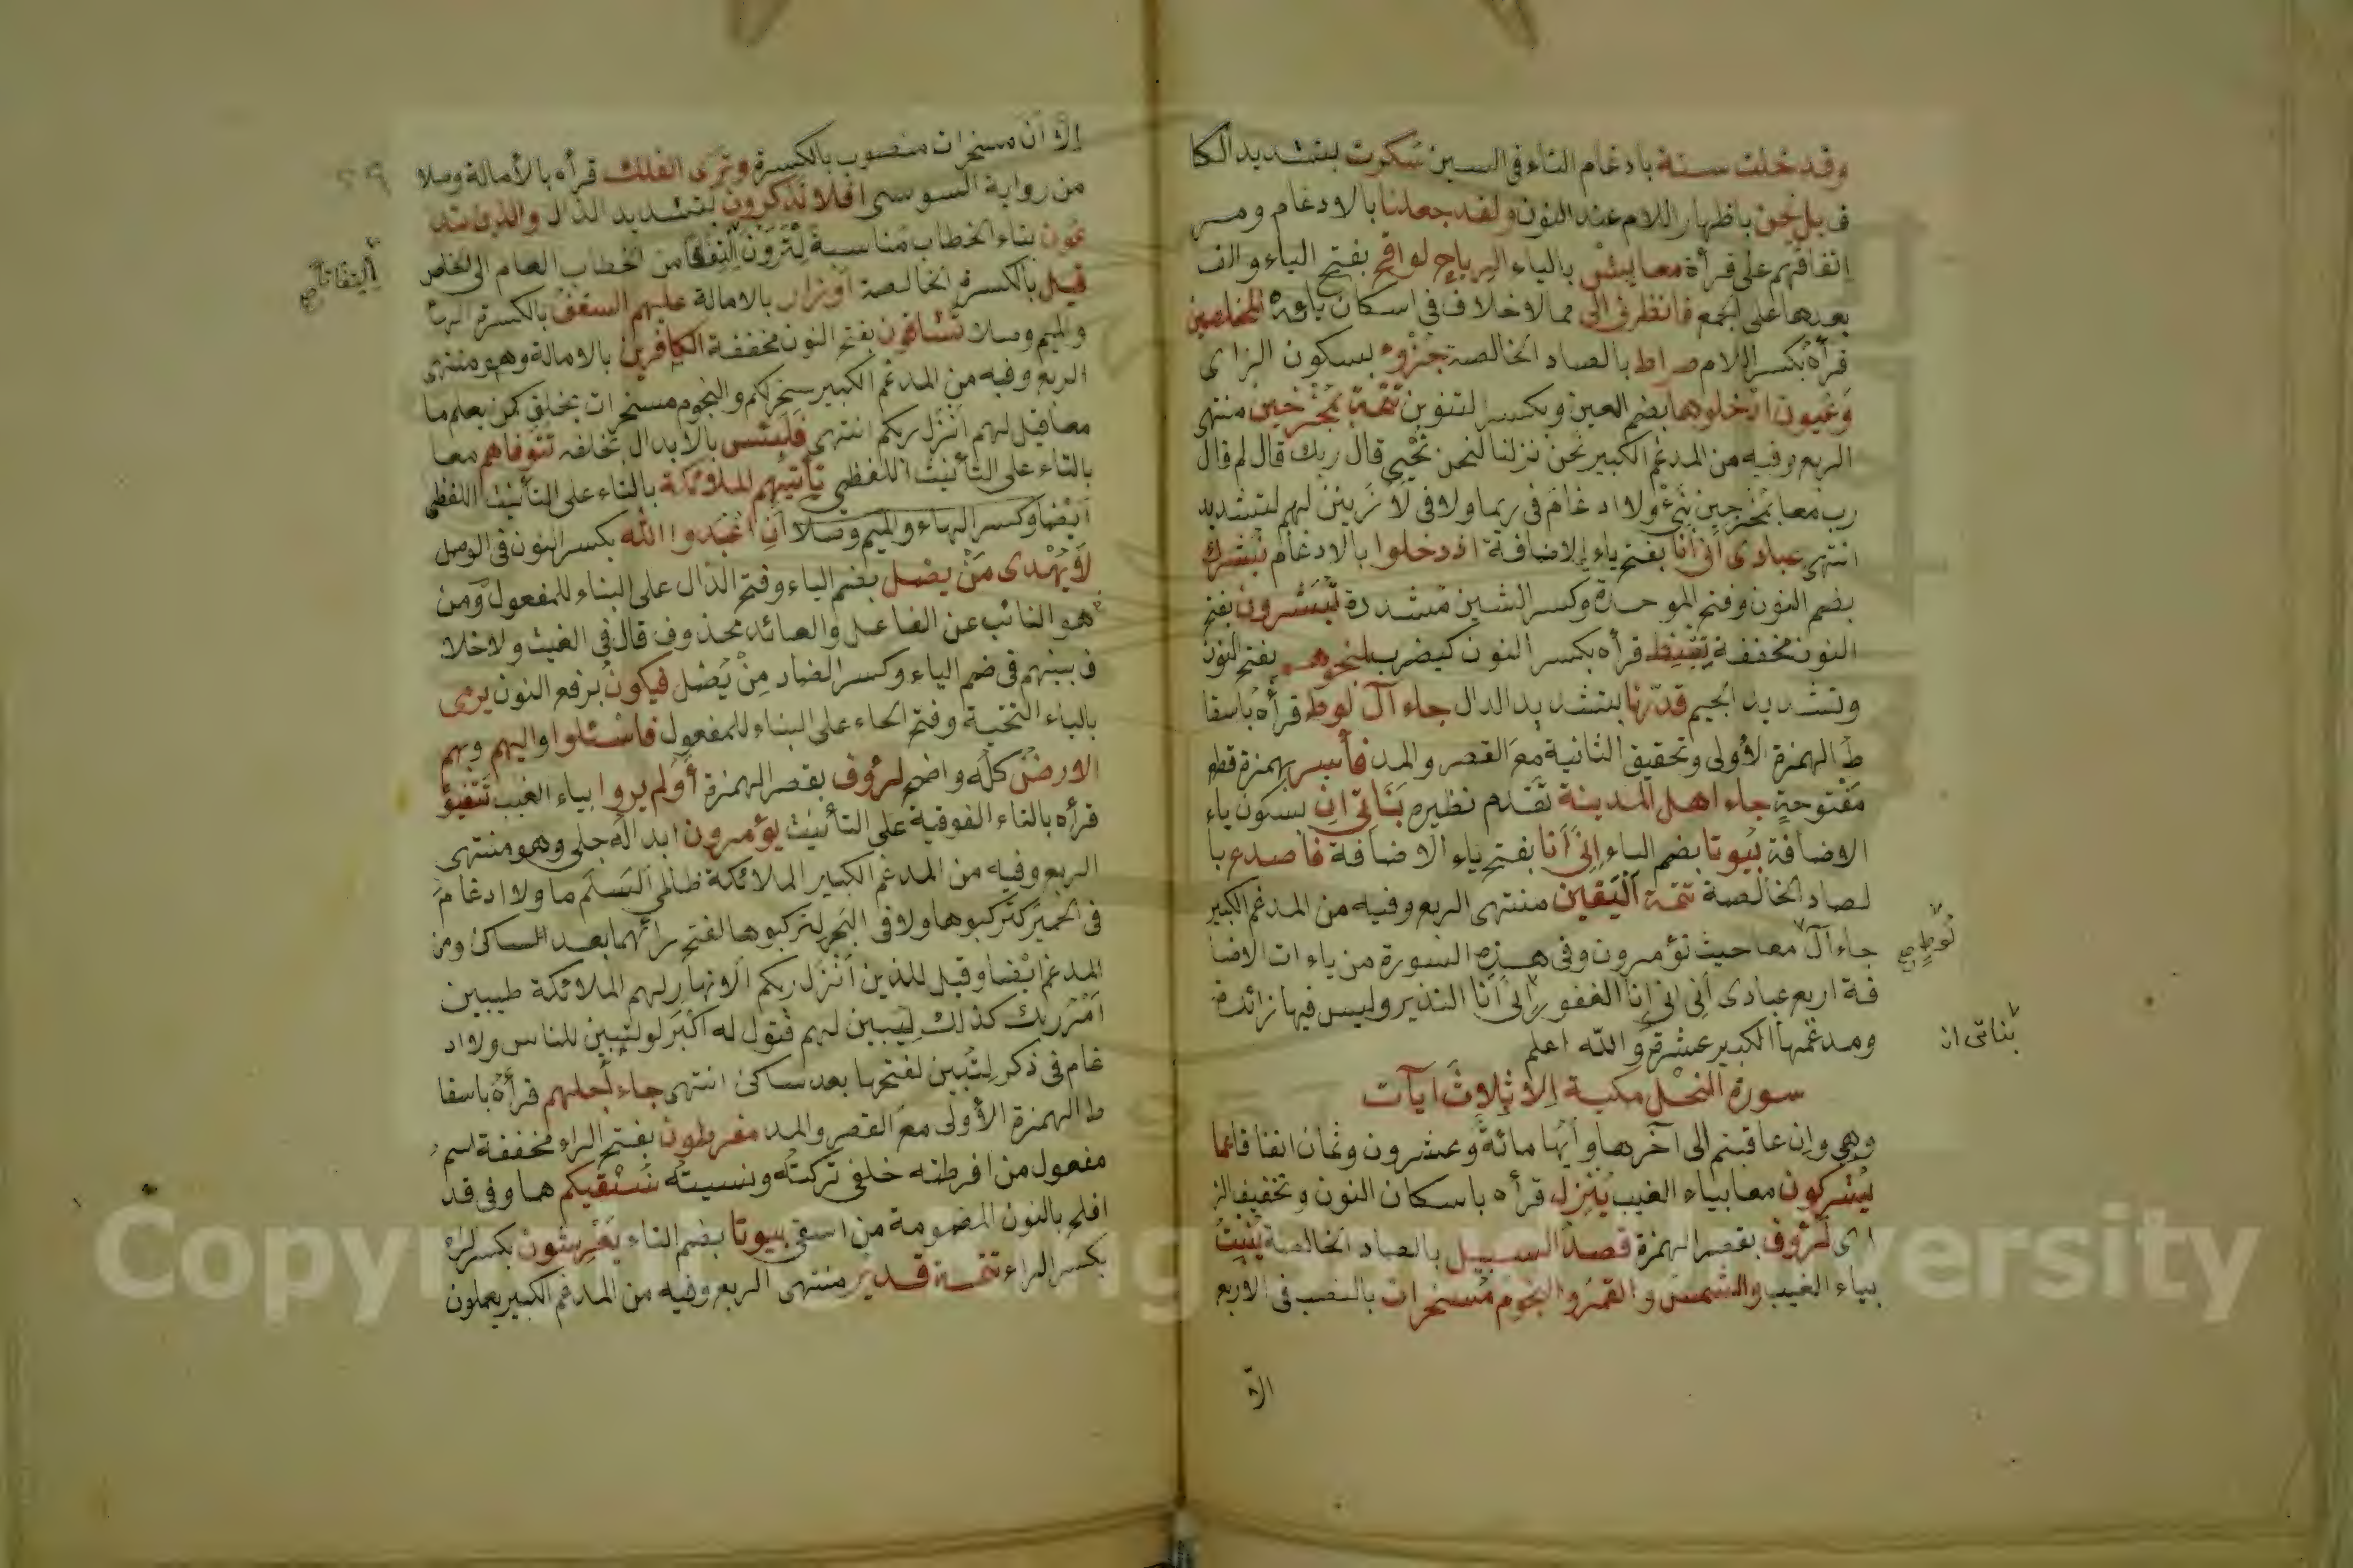 وقد خلت سنة بادغام التاء في السين سكرت بتشديد الكا
ف بل نحن باظهار اللام عند النون ولقد جعلنا بالادغام ومر
اتفاقهم على قرأة معايش بالياء الرياح لواقح بفتح الياء والف
بعدها على الجمع فانظرني الى مما لا خلاف في اسكان يائه المخلصين
قرأه بكسر اللام صراط بالصاد الخالصة جزؤ بسكون الزاى
وعيون ادخلوها بضم العين وبكسر التنوين تتمة بمخرجين منتهى
الربع وفيه من المدغم الكبير نحن نزلنا لنحن نحيي قال ربك قال لم قال
رب معا بمخرجين نبئ ولا ادغام في ربما ولا في لأزينن لهم لتشديد
انتهى عبادى أنى أنا بفتح ياء الاضافة اذ دخلوا بالادغام نبشرك
بضم النون وفتح الموحدة وكسر الشين مشددة تبشرون بفتح
النون مخففة يقنط قرأه بكسر النون كيضرب لمنجوهم بفتح النون
وتشديد الجيم قدرنا بتشديد الدال جاء آل لوط قرأه باسقا
ط الهمزة الأولى وتحقيق الثانية مع القصر والمد فأسر بهمزة قطع
مفتوحة جاء اهل المدينة تقدم نظيره بناتى ان بسكون ياء
الاضافة بيوتا بضم الباء إنى أنا بفتح ياء الاضافة فاصدع با
لصاد الخالصة تتمة اليقين منتهى الربع وفيه من المدغم الكبير
جاء آل معا حيث تؤمرون وفي هذه السورة من ياءات الاضا
فة اربع عبادى أنى انى أنا الغفور إنى أنا النذير وليس فيها زائدة
ومدغمها الكبير عشرة والله اعلم
سورة النحل مكية إلا ثلاث آيات
وهي وإن عاقبتم الى آخرها وآيها مائة وعشرون وثمان اتفاقا عما
يشركون معا بياء الغيب ينزل قرأه باسكان النون وتخفيف الز
اى لرؤف بقصر الهمزة قصد السبيل بالصاد الخالصة ينبت
بياء الغيب والشمس والقمر والنجوم مسخرات بالنصب في الاربع
الا
لوط صح
بناتى ان
إلا أن مسخرات منصوب بالكسرة وترى الفلك قرأه بالأمالة وصلا
من رواية السوسى افلا تذكرون بتشديد الذال والذين تد
عون بتاء الخطاب مناسبة لتعرون التفاتا من الخطاب العام الى الخاص
قيل بالكسرة الخالصة أوزار بالامالة عليهم السقف بالكسرة الهاء
والميم وصلا تشاقون بفتح النون مخففة الكافرين بالامالة وهو منتهى
الربع وفيه من المدغم الكبير سخر لكم والنجوم مسخرات يخلق كمن يعلم ما
معا قيل لهم انزل ربكم انتهى فلبئس بالأبدال بخلفه تتوفاهم معا
بالتاء على التأنيث اللفظي تأتيهم الملائكة بالتاء على التأنيث اللفظى
أيضا وكسر الهاء والميم وصلا أن اعبدوا الله بكسر النون في الوصل
لا يهدى من يضل بضم الياء وفتح الدال على البناء للمفعول ومن
هو النائب عن الفاعل والعائد محذوف قال في الغيث ولا خلا
ف بينهم في ضم الياء وكسر الضاد من يضل فيكون برفع النون يوحى
بالياء التحتية وفتح الحاء على البناء للمفعول فاسئلوا واليهم وبهم
الارض كله واضح لرؤف بقصر الهمزة أولم يروا بياء الغيب تتفيؤ
قرأه بالتاء الفوقية على التأنيث يؤمرون ابداله جلى وهو منتهى
الربع وفيه من المدغم الكبير الملائكة ظالمى السلم ما ولا ادغام
في الحمير لتركبوها ولا في البحر لتركبوها لفتح رائهما بعد الساكن ومن
المدغم ايضا وقيل للذين أنزل ربكم الانهار لهم الملائكة طيبين
أمر ربك كذلك ليبين لهم نقول له أكبر لو لتبين للناس ولا اد
غام في ذكر لتبين لفتحها بعد ساكن انتهى جاء أجلهم قرأه باسقا
ط الهمزة الأولى مع القصر والمد مفرطون بفتح الراء مخففة اسم
مفعول من افرطته خلفى تركته ونسيته نسقيكم هنا وفي قد
افلح بالنون المضمومة من اسقى بيوتا بضم الباء يعرشون بكسر الراء
بكسر الراء تتمة قدير منتهى الربع وفيه من المدغم الكبير يعملون
التفاتا صح
٥٩
Copyright © King Saud University